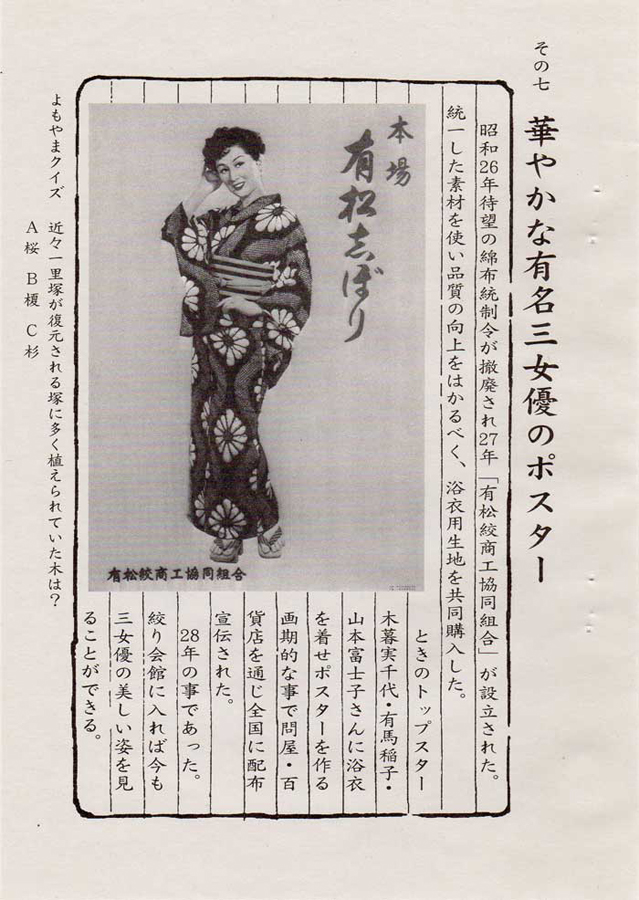 その七
華やかな有名三女優のポスター
昭和26年待望の綿布統制令が撤廃され27年「有松絞商工協同組合」が設立された。
統一した素材を使い品質の向上をはかるべく、浴衣用生地を共同購入した。
本場
有松志ぼり
有松絞商工協同組合
ときのトップスター
木暮実千代・有馬稲子・
山本富士子さんに浴衣
を着せポスターを作る
画期的な事で問屋・百
貨店を通じ全国に配布
宣伝された。
28年の事であった。
絞り会館に入れば今も
三女優の美しい姿を見
ることができる。
よもやまクイズ 近々一里塚が復元される塚に多く植えられていた木は?
A桜 B榎 C杉